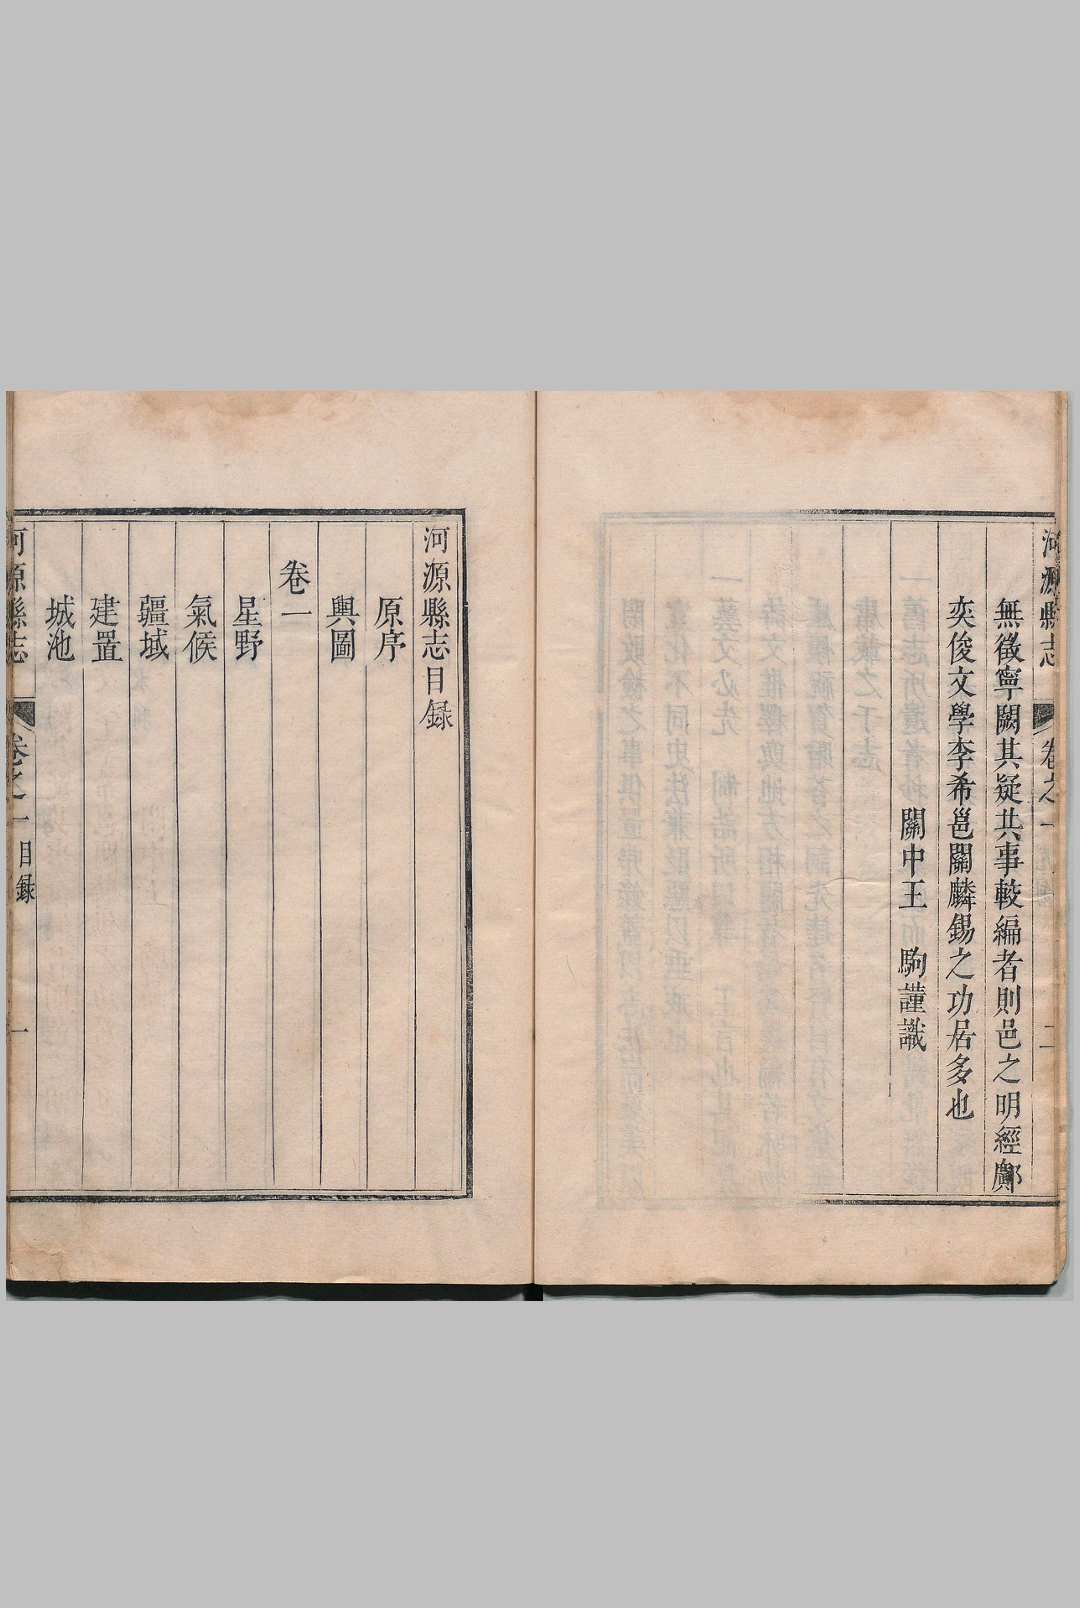 河源縣志 卷之一 二
無徵寧闕其疑共事較編者則邑之明經鄺
奕俊文學李希邕關麟錫之功居多也
關中王 駒謹識
河源縣志目録
原序
輿圖
卷一
星野
氣候
疆域
建置
城池
河源縣志 卷之一 目録 一